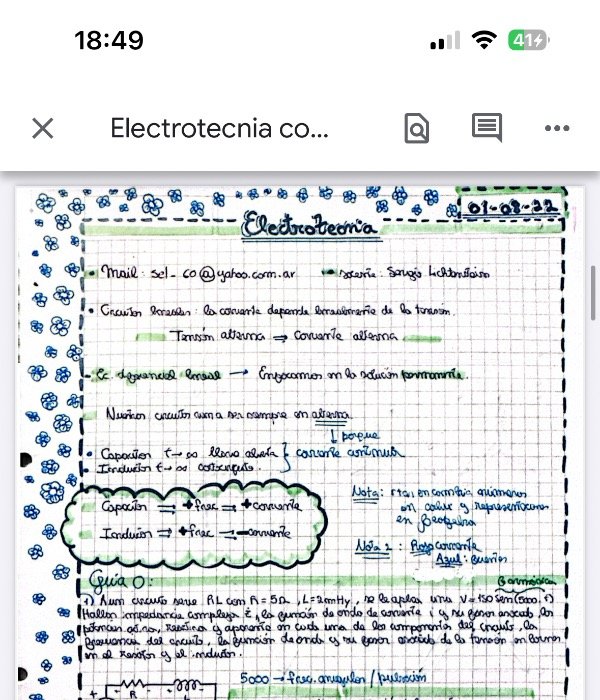 18:49
41
Electrotecnia co...
01-08-22
Electrotecnia
• Mail: sel-co@yahoo.com.ar • Docente: Sergio Lichtenstein
• Circuitos lineales: la corriente depende linealmente de la tensión.
Tensión alterna → corriente alterna
Ec. diferencial lineal → Enfocarnos en la solución permanente.
Nuestros circuitos van a ser siempre en alterna
↓ porque
• Capacitor t→∞ llave abierta } corriente continua
• Inductor t→∞ cortocircuito.
Capacitor → +frec → +corriente
Inductor → +frec → -corriente
Nota: en
en color y
en
Nota 2: Rojo corriente
Azul:
Guía 0:
Armónica
1) A un circuito serie RL con R=5Ω, L=2mHy, se le aplica una V=150 sen(5000.t)
Hallar impedancia compleja Z, la función de onda de corriente i y su fasor asociado, las
potencias activa, reactiva y aparente en cada una de los componentes del circuito, la
frecuencia del circuito, la función de onda y su fasor asociado de la tensión en bornes
en el resistor y el inductor.
5000 → frec. angular / pulsación
+ R L